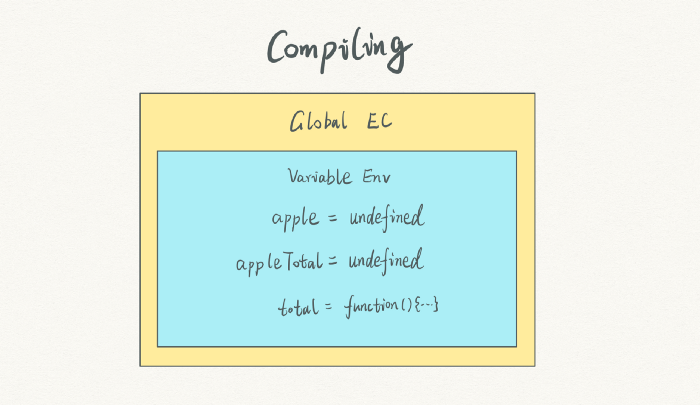 Compiling
Global EC
Variable Env
apple = undefined
appleTotal = undefined
total = function(){...}